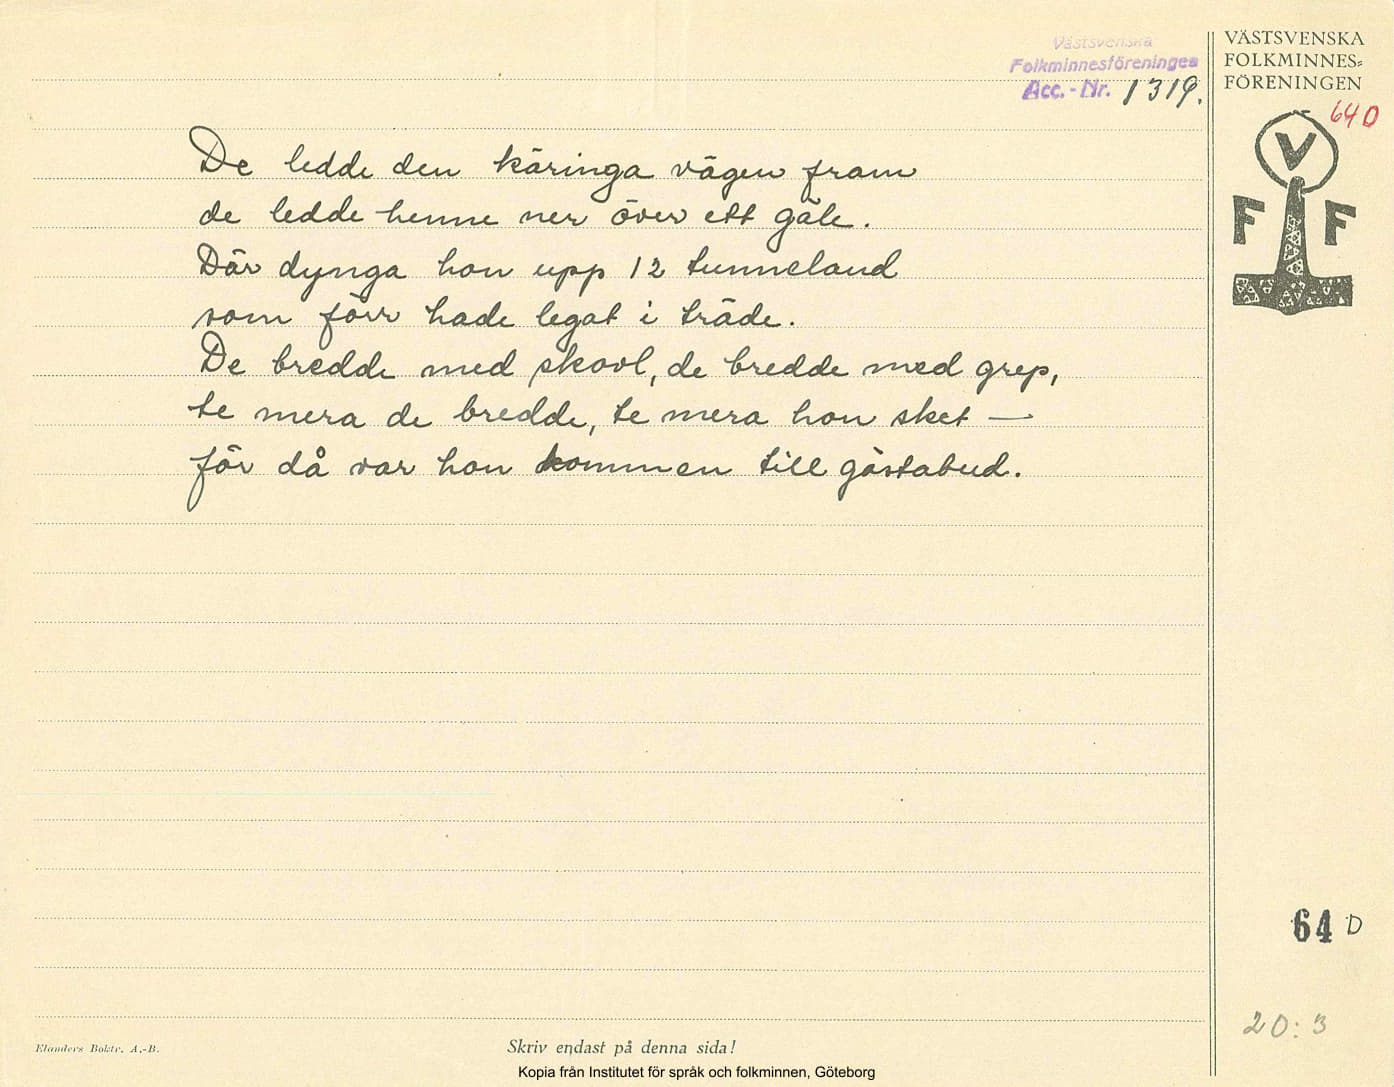 Västsvenska
Folkminnesföreningen
Acc.-Nr. 1319.
VÄSTSVENSKA
FOLKMINNES=
FÖRENINGEN
64 D
V
F F
De ledde den käringa vägen fram
de ledde henne ner över ett gäle.
Där dynga hon upp 12 tunneland
som förr hade legat i träde.
De bredde med skovl, de bredde med grep,
te mera de bredde, te mera hon sket —
för då var hon kommen till gästabud.
64 D
20:3
Elanders Boktr. A.-B.
Skriv endast på denna sida!
Kopia från Institutet för språk och folkminnen, Göteborg